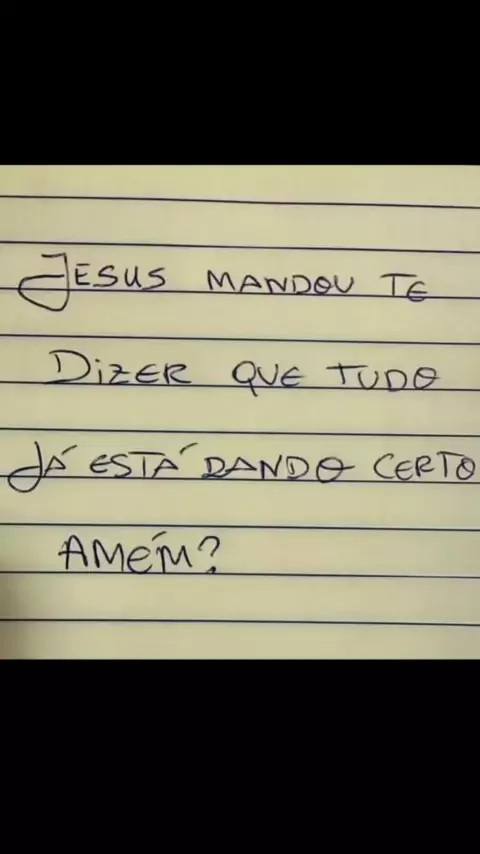 JESUS MANDOU TE
DIZER QUE TUDO
JÁ ESTÁ DANDO CERTO
AMÉM?